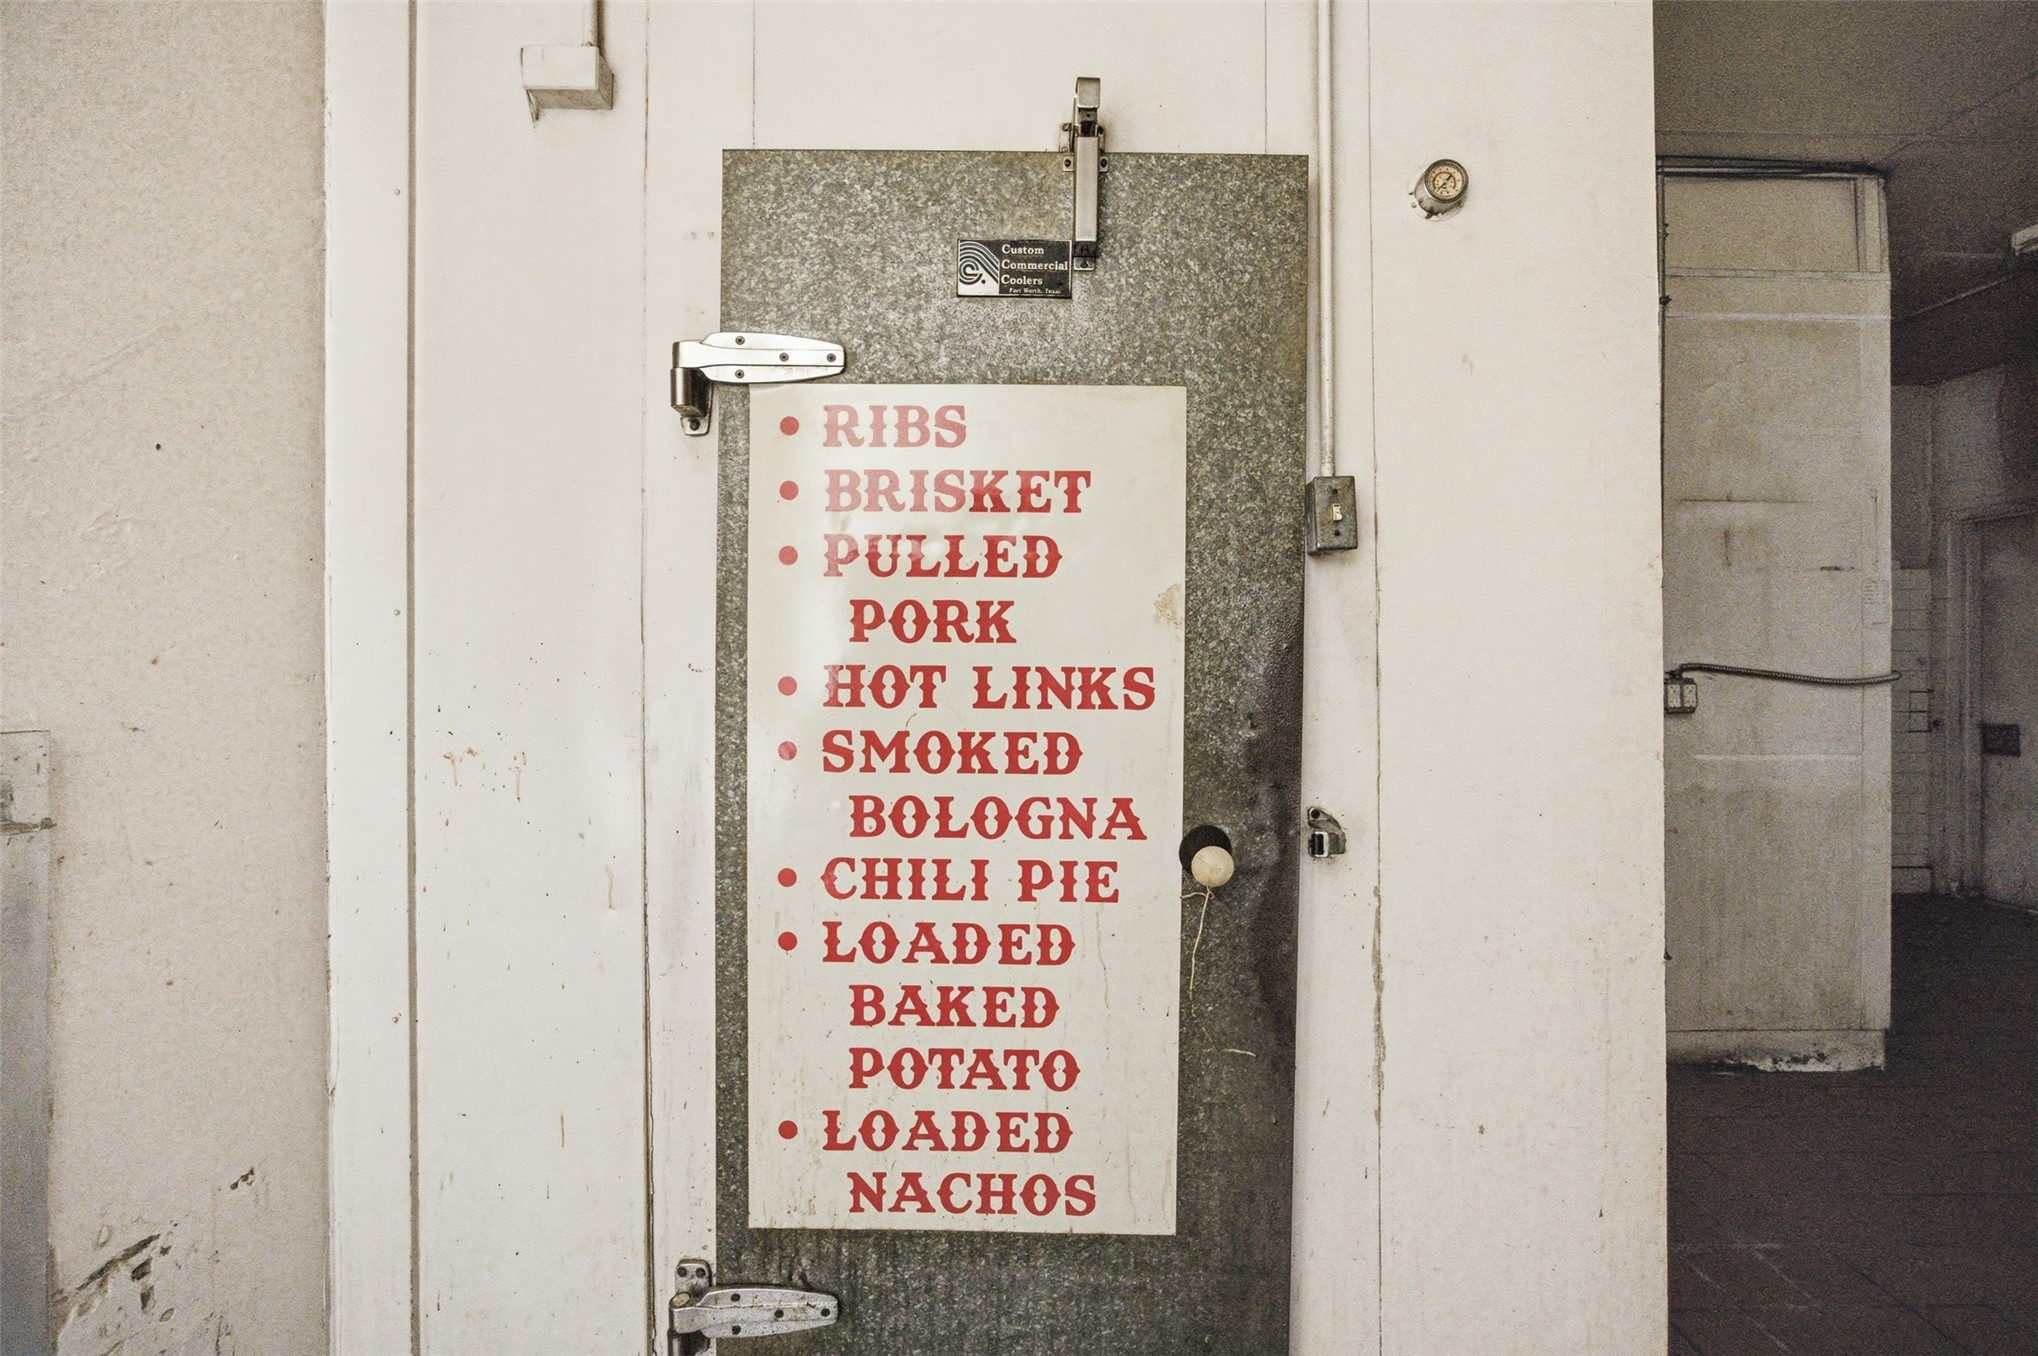 Custom
Commercial
Coolers
Fort Worth, Texas
• RIBS
• BRISKET
• PULLED
PORK
• HOT LINKS
• SMOKED
BOLOGNA
• CHILI PIE
• LOADED
BAKED
POTATO
• LOADED
NACHOS